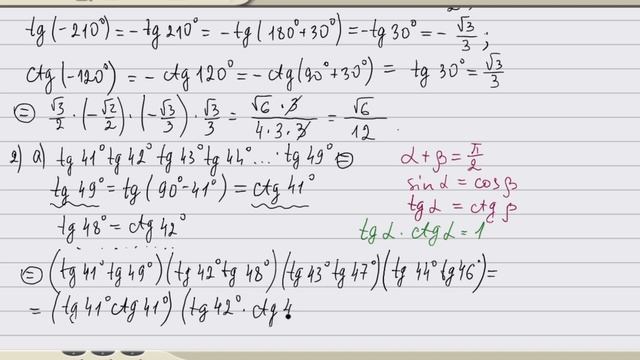 tg(-210°) = -tg 210° = -tg(180°+30°) = -tg 30° = -√3/3;
ctg(-120°) = -ctg 120° = -ctg(90°+30°) = tg 30° = √3/3
= √3/2 · (-√2/2) · (-√3/3) · √3/3 = √6 · 3/4·3·3 = √6/12 .
2) a) tg 41° tg 42° tg 43° tg 44° ... · tg 49° =
tg 49° = tg(90°-41°) = ctg 41°
tg 48° = ctg 42°
α+β = π/2
sin α = cos β
tg α = ctg β
tg α · ctg α = 1
= (tg 41° tg 49°)(tg 42° tg 48°)(tg 43° tg 47°)(tg 44° tg 46°) =
= (tg 41° ctg 41°)(tg 42° · ctg 4